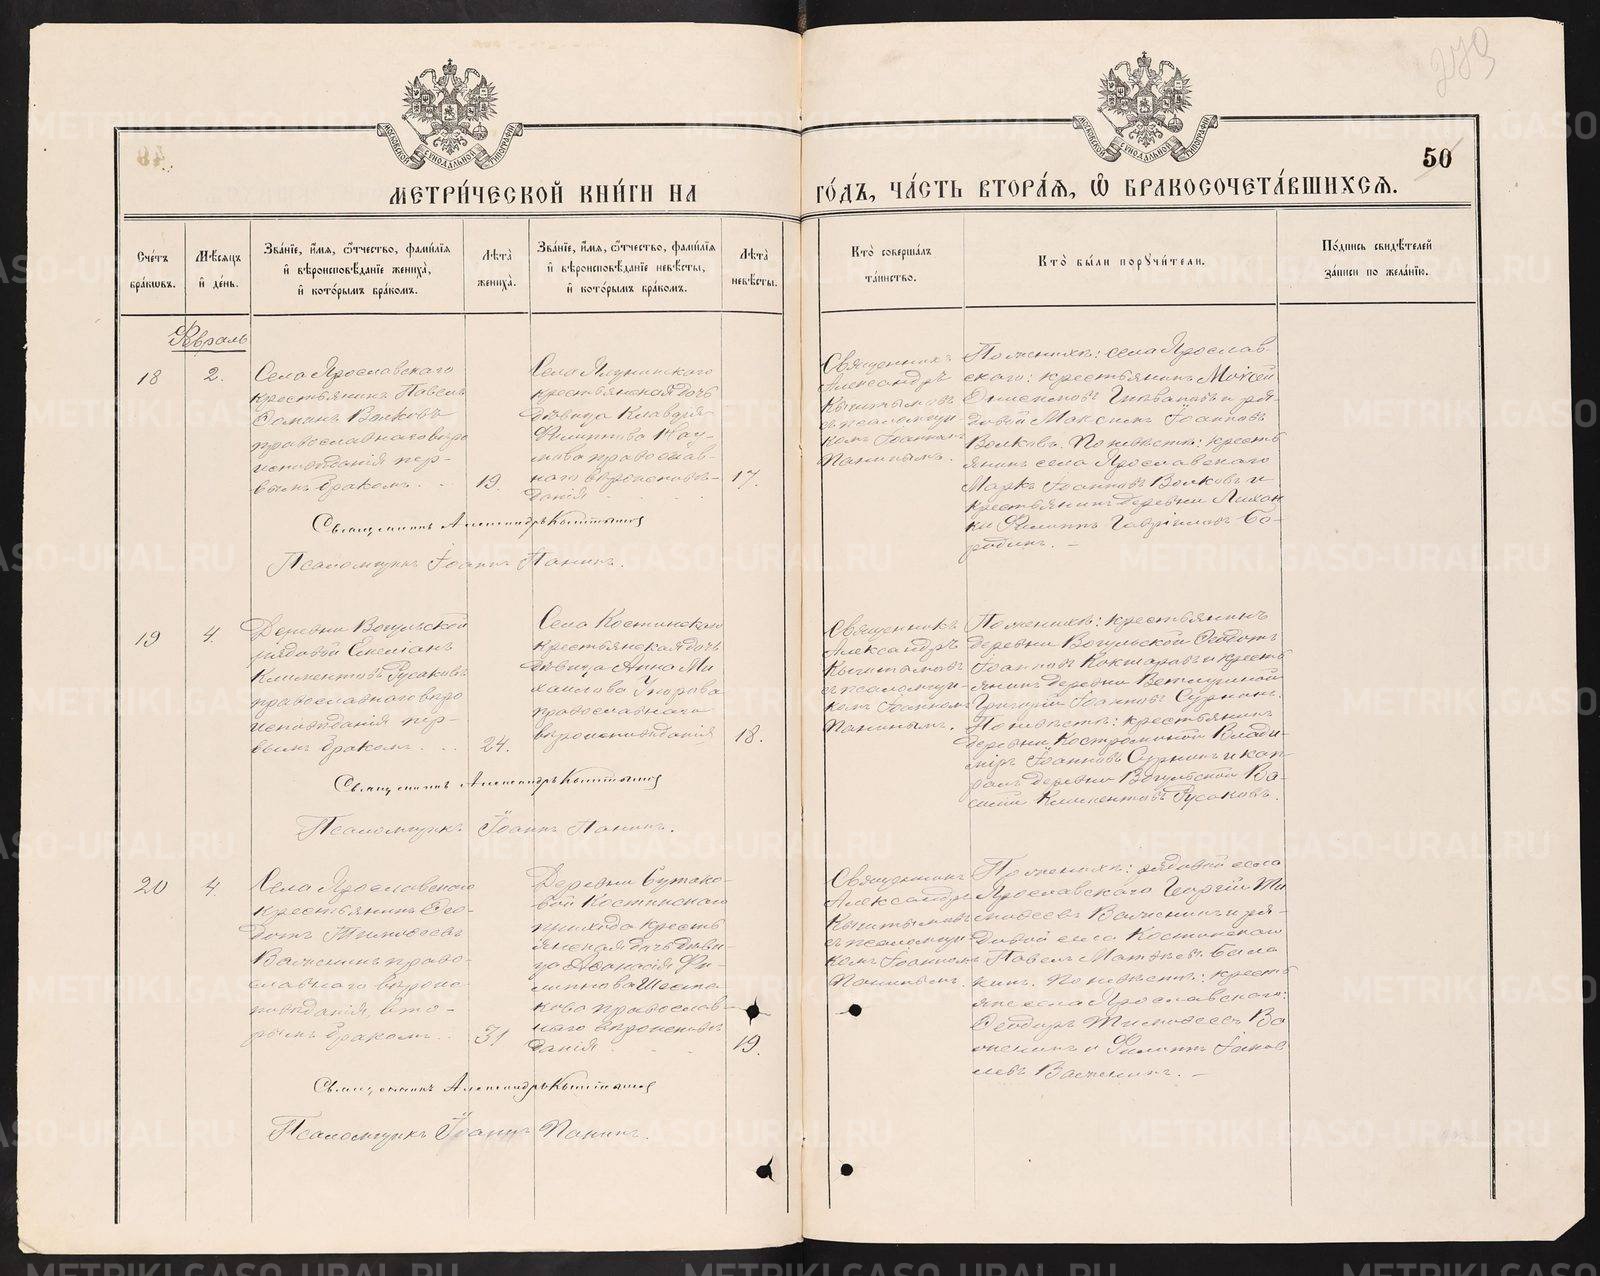 279
50
МОСКОВСКОЙ СУНОДАЛЬНОЙ ТИПОГРАФІИ
МОСКОВСКОЙ СУНОДАЛЬНОЙ ТИПОГРАФІИ
МЕТРИ́ЧЕСКОЙ КНИ́ГИ НА
ГО́ДЪ, ЧА́СТЬ ВТОРА́Я, Ѽ БРАКОСОЧЕТА́ВШИХСЯ.
Сче́тъ
бра́кѡвъ.
Мѣ́сяцъ
и҆ де́нь.
Зва́нїе, и҆́мя, ѻ҆́тчество, фами́лїя
и҆ вѣроисповѣ́данїе жениха̀,
и҆ кото́рымъ бра́комъ.
Лѣ́та
жениха̀.
Зва́нїе, и҆́мя, ѻ҆́тчество, фами́лїя
и҆ вѣроисповѣ́данїе невѣ́сты,
и҆ кото́рымъ бра́комъ.
Лѣ́та
невѣ́сты.
Кто̀ соверша́лъ
та́инство.
Кто̀ бы́ли порꙋчи́тели.
По́дпись свидѣ́телей
за́писи по жела́нїю.
Февраль
18
2.
Села Ярославскаго
крестьянинъ Павелъ
Волковъ
православнаго вѣро
исповѣданія пер-
вымъ бракомъ. . .
19.
Село
крестьянская дочь
дѣвица Клавдія
Филиппова Нау-
мова православ-
наго вѣроисповѣ-
данія . . .
17.
Священникъ
Александръ
Кыштымовъ
съ псаломщи
комъ Іоанномъ
Панинымъ.
По женихѣ: села Ярослав-
скаго: крестьянинъ Моѵсей
Онисимовъ и ря-
довой Максимъ Іоанновъ
Волковъ. По невѣстѣ: кресть
янинъ села Ярославскаго
Маркъ Іоанновъ Волковъ и
крестьянинъ деревни Лихан
ки Филиппъ Гавріиловъ Бо-
родинъ. –
Священникъ Александръ Кыштымов
Псаломщикъ Іоаннъ Панинъ.
19
4.
Деревни Вогульской
рядовой Емеліанъ
Климентовъ Русаковъ
православнаго вѣро
исповѣданія пер-
вымъ бракомъ. . .
24.
Села Костинскаго
крестьянская дочь
дѣвица Анна Ми
хаилова Упорова
православнаго
вѣроисповѣданія
18.
Священникъ
Александръ
Кыштымовъ
съ псаломщи-
комъ Іоанномъ
Панинымъ.
По женихѣ: крестьянинъ
деревни Вогульской Ѳеодотъ
Іоанновъ Кокшаровъ и кресть
янинъ деревни Ветлугиной
Григорій Іоанновъ Суринъ.
По невѣстѣ: крестьянинъ
деревни Костроминой Влади-
міръ Іоанновъ Суринъ и кап-
ралъ деревни Вогульской Ва-
силій Климентовъ Русаковъ.
Священникъ Александръ Кыштымов
Псаломщикъ Іоаннъ Панинъ.
20
4.
Села Ярославскаго
крестьянинъ Ѳео-
дотъ Тимоѳеевъ
право-
славнаго вѣроис-
повѣданія, вто-
рымъ бракомъ. . .
31
Деревни Бутако-
вой Костинскаго
прихода кресть
янская дочь дѣви-
ца Аѳанасія Фи-
липпова Шеста-
кова православ-
наго вѣроисповѣ
данія . . .
19.
Священникъ
Александръ
Кыштымовъ
съ псаломщи
комъ Іоанномъ
Панинымъ.
По женихѣ: рядовой села
Ярославскаго Георгій Ти
моѳеевъ и ря-
довой села Костинскаго
Павелъ Матѳеевъ
По невѣстѣ: кресть
яне села Ярославскаго:
Ѳеодоръ Тимоѳеевъ
и Филиппъ Іаков
левъ
Священникъ Александръ Кыштымов
Псаломщикъ Іоаннъ Панинъ.
METRIKI.GASO-URAL.RU